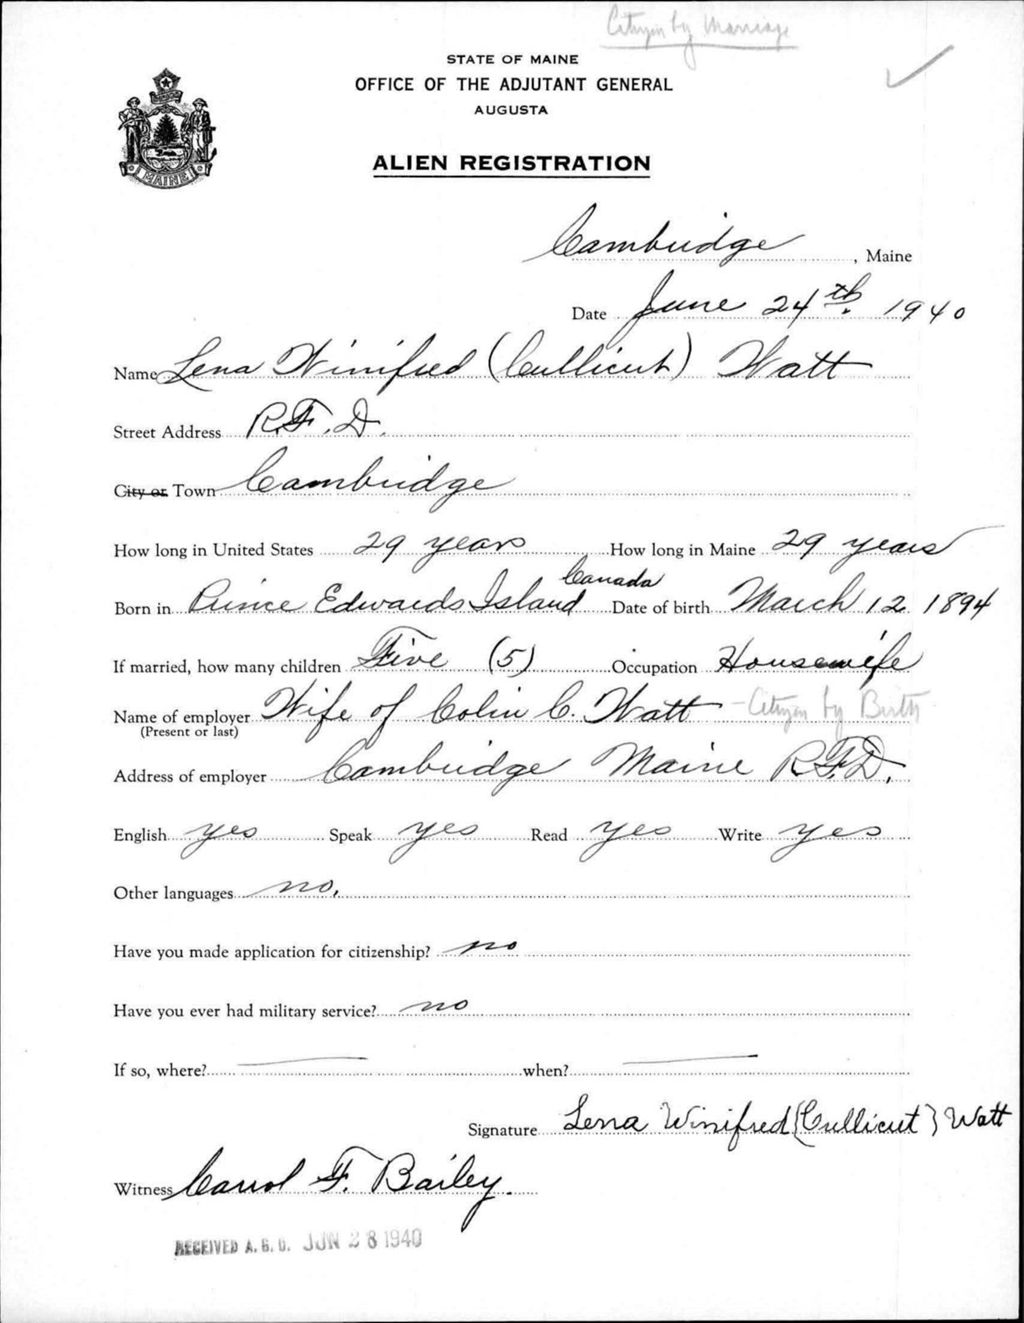 Citizen by Marriage
STATE OF MAINE
OFFICE OF THE ADJUTANT GENERAL
AUGUSTA
MAINE
ALIEN REGISTRATION
Cambridge, Maine
Date June 24th. 1940
Name Lena Winifred (Cullicut) Watt
Street Address R.F.D.
City or Town Cambridge
How long in United States 29 years How long in Maine 29 years
Born in Prince Edwards Island Canada Date of birth March 12 1894
If married, how many children Five (5) Occupation Housewife
Name of employer Wife of Colin C. Watt - Citizen by Birth
(Present or last)
Address of employer Cambridge Maine R.F.D.
English yes Speak yes Read yes Write yes
Other languages no.
Have you made application for citizenship? no
Have you ever had military service? no
If so, where? when?
Signature Lena Winifred (Cullicut) Watt
Witness Carrol F. Bailey.
RECEIVED A.G.O. JUN 28 1940